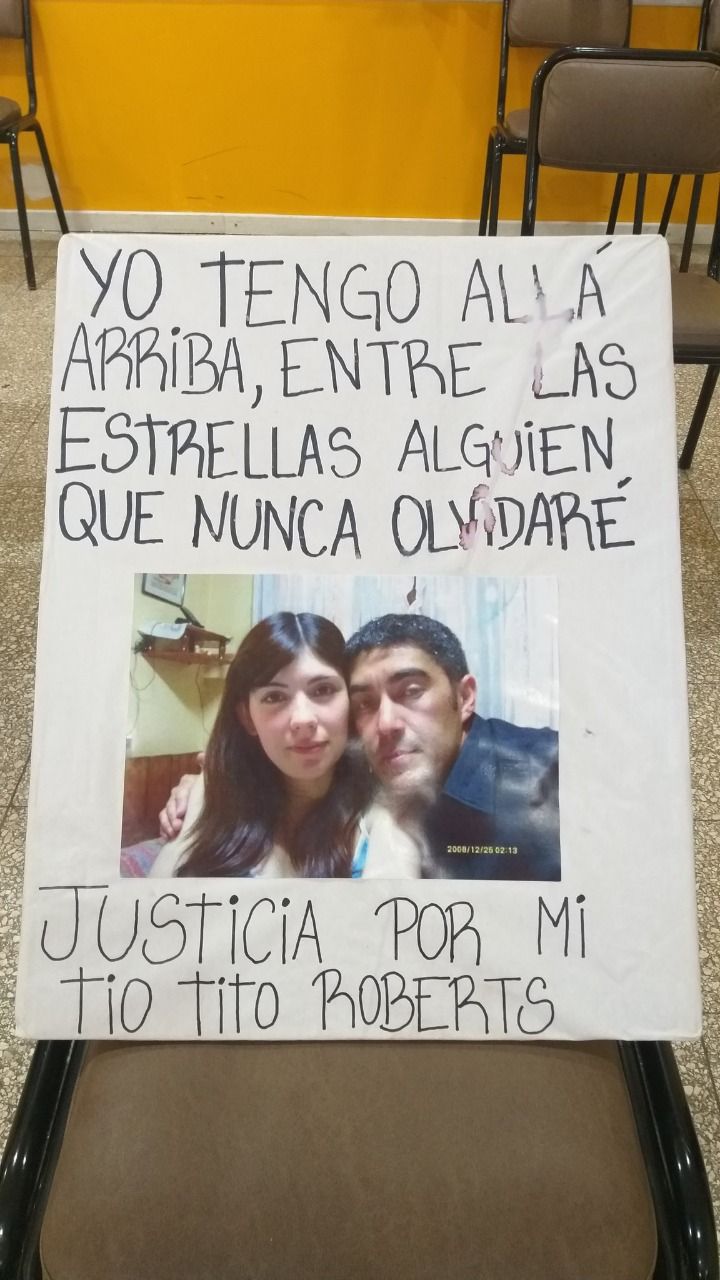 YO TENGO ALLÁ
ARRiBA, ENTRE LAS
ESTRELLAS ALGUiEN
QUE NUNCA OLViDARÉ
2008/12/26 02:13
JUSTiCiA POR Mi
tio tito ROBERTS